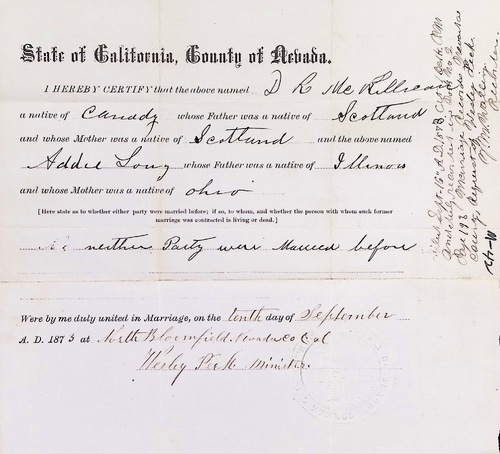 State of California, County of Nevada.
I HEREBY CERTIFY that the above named D R McKillican
a native of Canady whose Father was a native of Scotland
and whose Mother was a native of Scotland and the above named
Addie Long whose Father was a native of Illinois
and whose Mother was a native of ohio
[Here state as to whether either party were married before; if so, to whom, and whether the person with whom such former
marriage was contracted is living or dead.]
neither Party were Married before
Were by me duly united in Marriage, on the tenth day of September
A. D. 1873 at North Bloomfield, Nevada Co Cal
Wesley Peck Minister.
Filed Sept. 16th A.D. 1873
Page 193 Marriage Records Nevada
County request of Wesley Peck